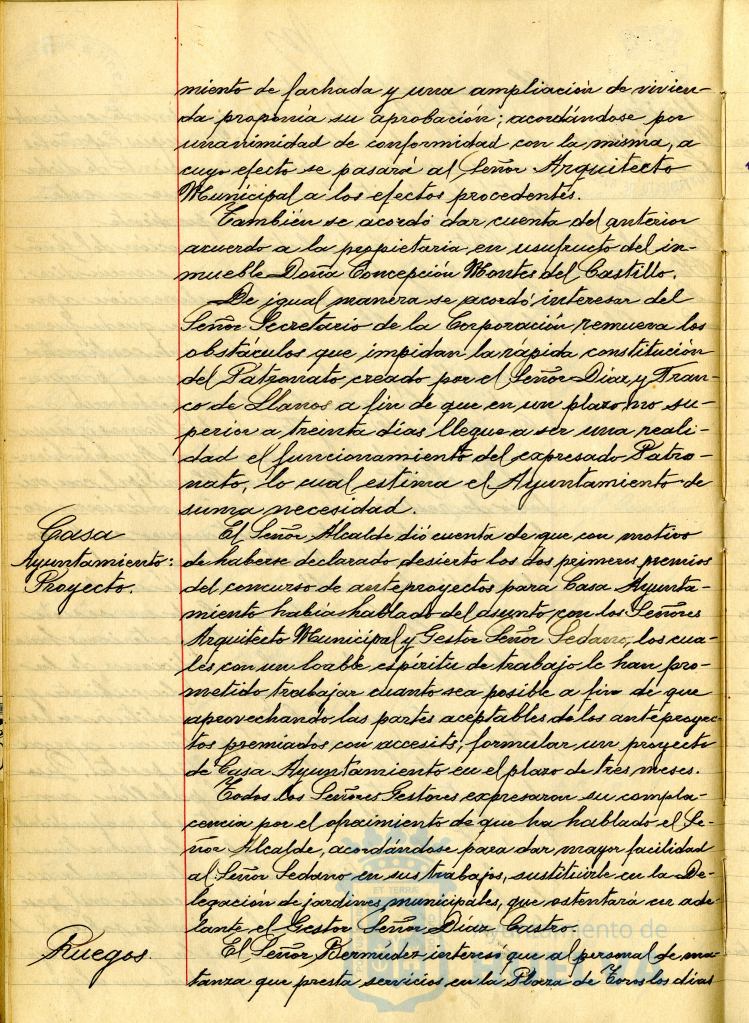 miento de fachada y una ampliación de vivien-
da proponía su aprobación; acordándose por
unanimidad de conformidad con la misma, a
cuyo efecto se pasará al Señor Arquitecto
Municipal a los efectos procedentes.
También se acordó dar cuenta del anterior
acuerdo a la propietaria en usufructo del in-
mueble Doña Concepción Montes del Castillo.
De igual manera se acordó interesar del
Señor Secretario de la Corporación, remueva los
obstáculos que impidan la rápida constitución
del Patronato creado por el Señor Díaz y Fran-
co de Llanos a fin de que en un plazo no su-
perior a treinta días llegue a ser una reali-
dad el funcionamiento del expresado Patro-
nato, lo cual estima el Ayuntamiento de
suma necesidad.
Casa
Ayuntamiento:
Proyecto.
El Señor Alcalde dió cuenta de que con motivo
de haberse declarado desierto los dos primeros premios
del concurso de anteproyectos para Casa Ayunta-
miento había hablado del asunto con los Señores
Arquitecto Municipal y Gestor Señor Sedano, los cua-
les con un loable espíritu de trabajo le han pro-
metido trabajar cuanto sea posible a fin de que
aprovechando las partes aceptables de los anteproyec-
tos premiados con accesits, formular un proyecto
de Casa Ayuntamiento en el plazo de tres meses.
Todos los Señores Gestores expresaron su compla-
cencia por el ofrecimiento de que ha hablado el Se-
ñor Alcalde, acordándose para dar mayor facilidad
al Señor Sedano en sus trabajos, sustituirle en la De-
legación de jardines municipales, que ostentará en ade-
lante el Gestor Señor Díaz Castro.
Ruegos.
El Señor Bermúdez interesó que al personal de ma-
tanza que presta servicios en la Plaza de Toros los días
ET TERRÆ
Ayuntamiento de
HUELVA